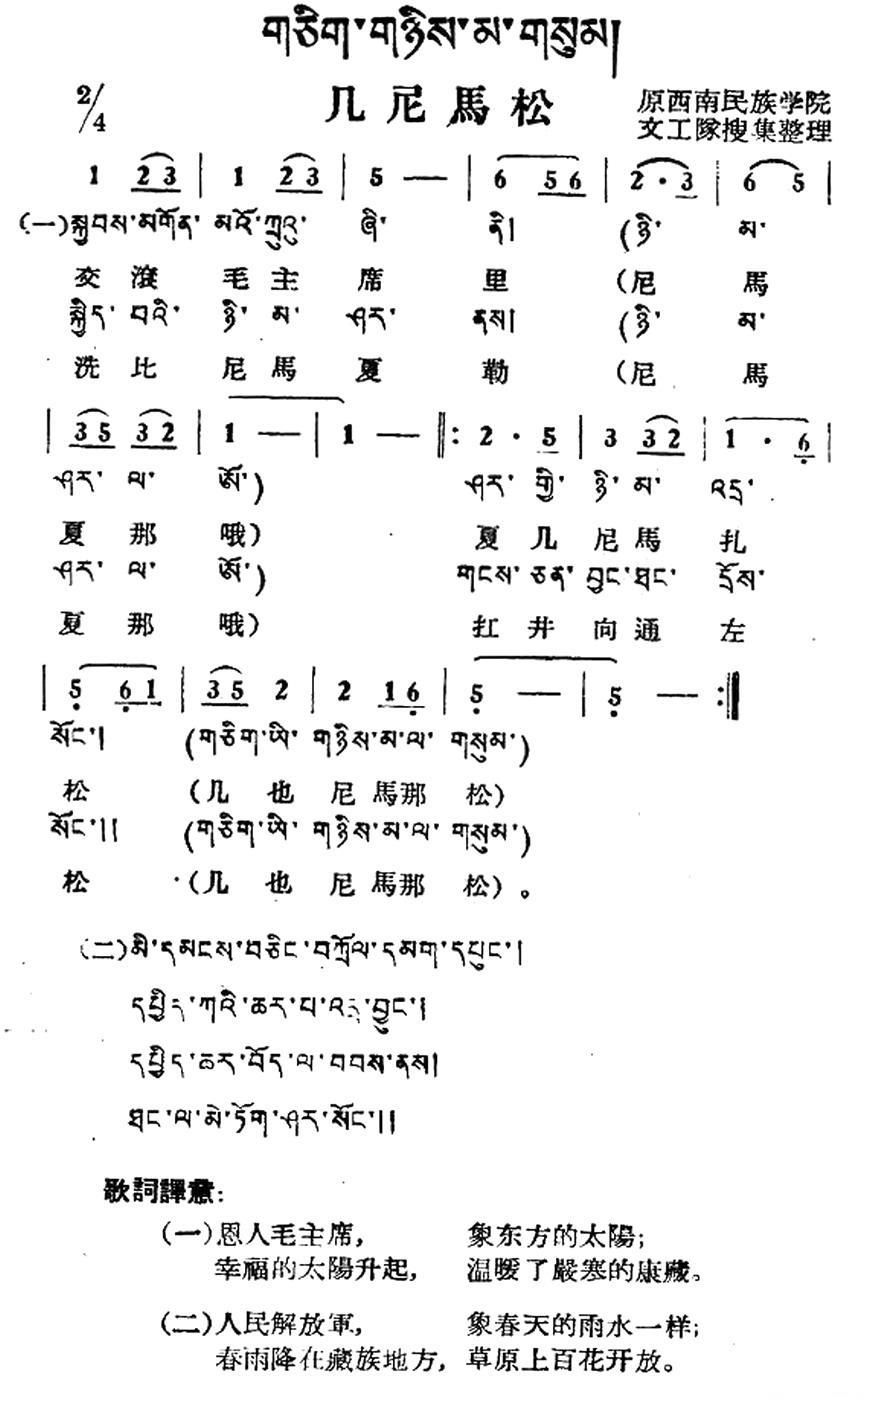 གཅིག་གཉིས་མ་གསུམ།
2/4
几尼馬松
原西南民族学院
文工隊搜集整理
1 2 3 | 1 2 3 | 5 — | 6 5 6 | 2 · 3 | 6 5 |
(一)སྐྱབས་མགོན་ མའོ་ཀྲུའུ་ ཞི་ ནི། (ཉི་ མ་
交滾 毛主 席 里 (尼 馬
སྐྱིད་ བའི་ ཉི་ མ་ ཤར་ ནས། (ཉི་ མ་
洗比 尼馬 夏 勒 (尼 馬
| 3 5 3 2 | 1 — | 1 — ‖: 2 · 5 | 3 3 2 | 1 · 6 |
ཤར་ ལ་ ཨོ་) ཤར་ གྱི་ ཉི་ མ་ འདྲ་
夏 那 哦) 夏几 尼馬 扎
ཤར་ ལ་ ཨོ་) གངས་ ཅན་ བྱང་ཐང་ དྲོས་
夏 那 哦) 扛井 向通 左
| 5 6 1 | 3 5 2 | 2 1 6 | 5 — | 5 — :‖
སོང་། (གཅིག་ཡི་ གཉིས་མ་ལ་ གསུམ་)
松 (几 也 尼馬那 松)
སོང་།། (གཅིག་ཡི་ གཉིས་མ་ལ་ གསུམ་)
松 (几 也 尼馬那 松)。
(二)མི་དམངས་བཅིང་བཀྲོལ་དམག་དཔུང་།
དཔྱིད་ཀའི་ཆར་པ་འདྲ་བྱུང་།
དཔྱིད་ཆར་བོད་ལ་བབས་ནས།
ཐང་ལ་མེ་ཏོག་ཤར་སོང་།།
歌詞譯意:
(一)恩人毛主席, 象东方的太陽;
幸福的太陽升起, 温暖了嚴寒的康藏。
(二)人民解放軍, 象春天的雨水一样;
春雨降在藏族地方, 草原上百花开放。